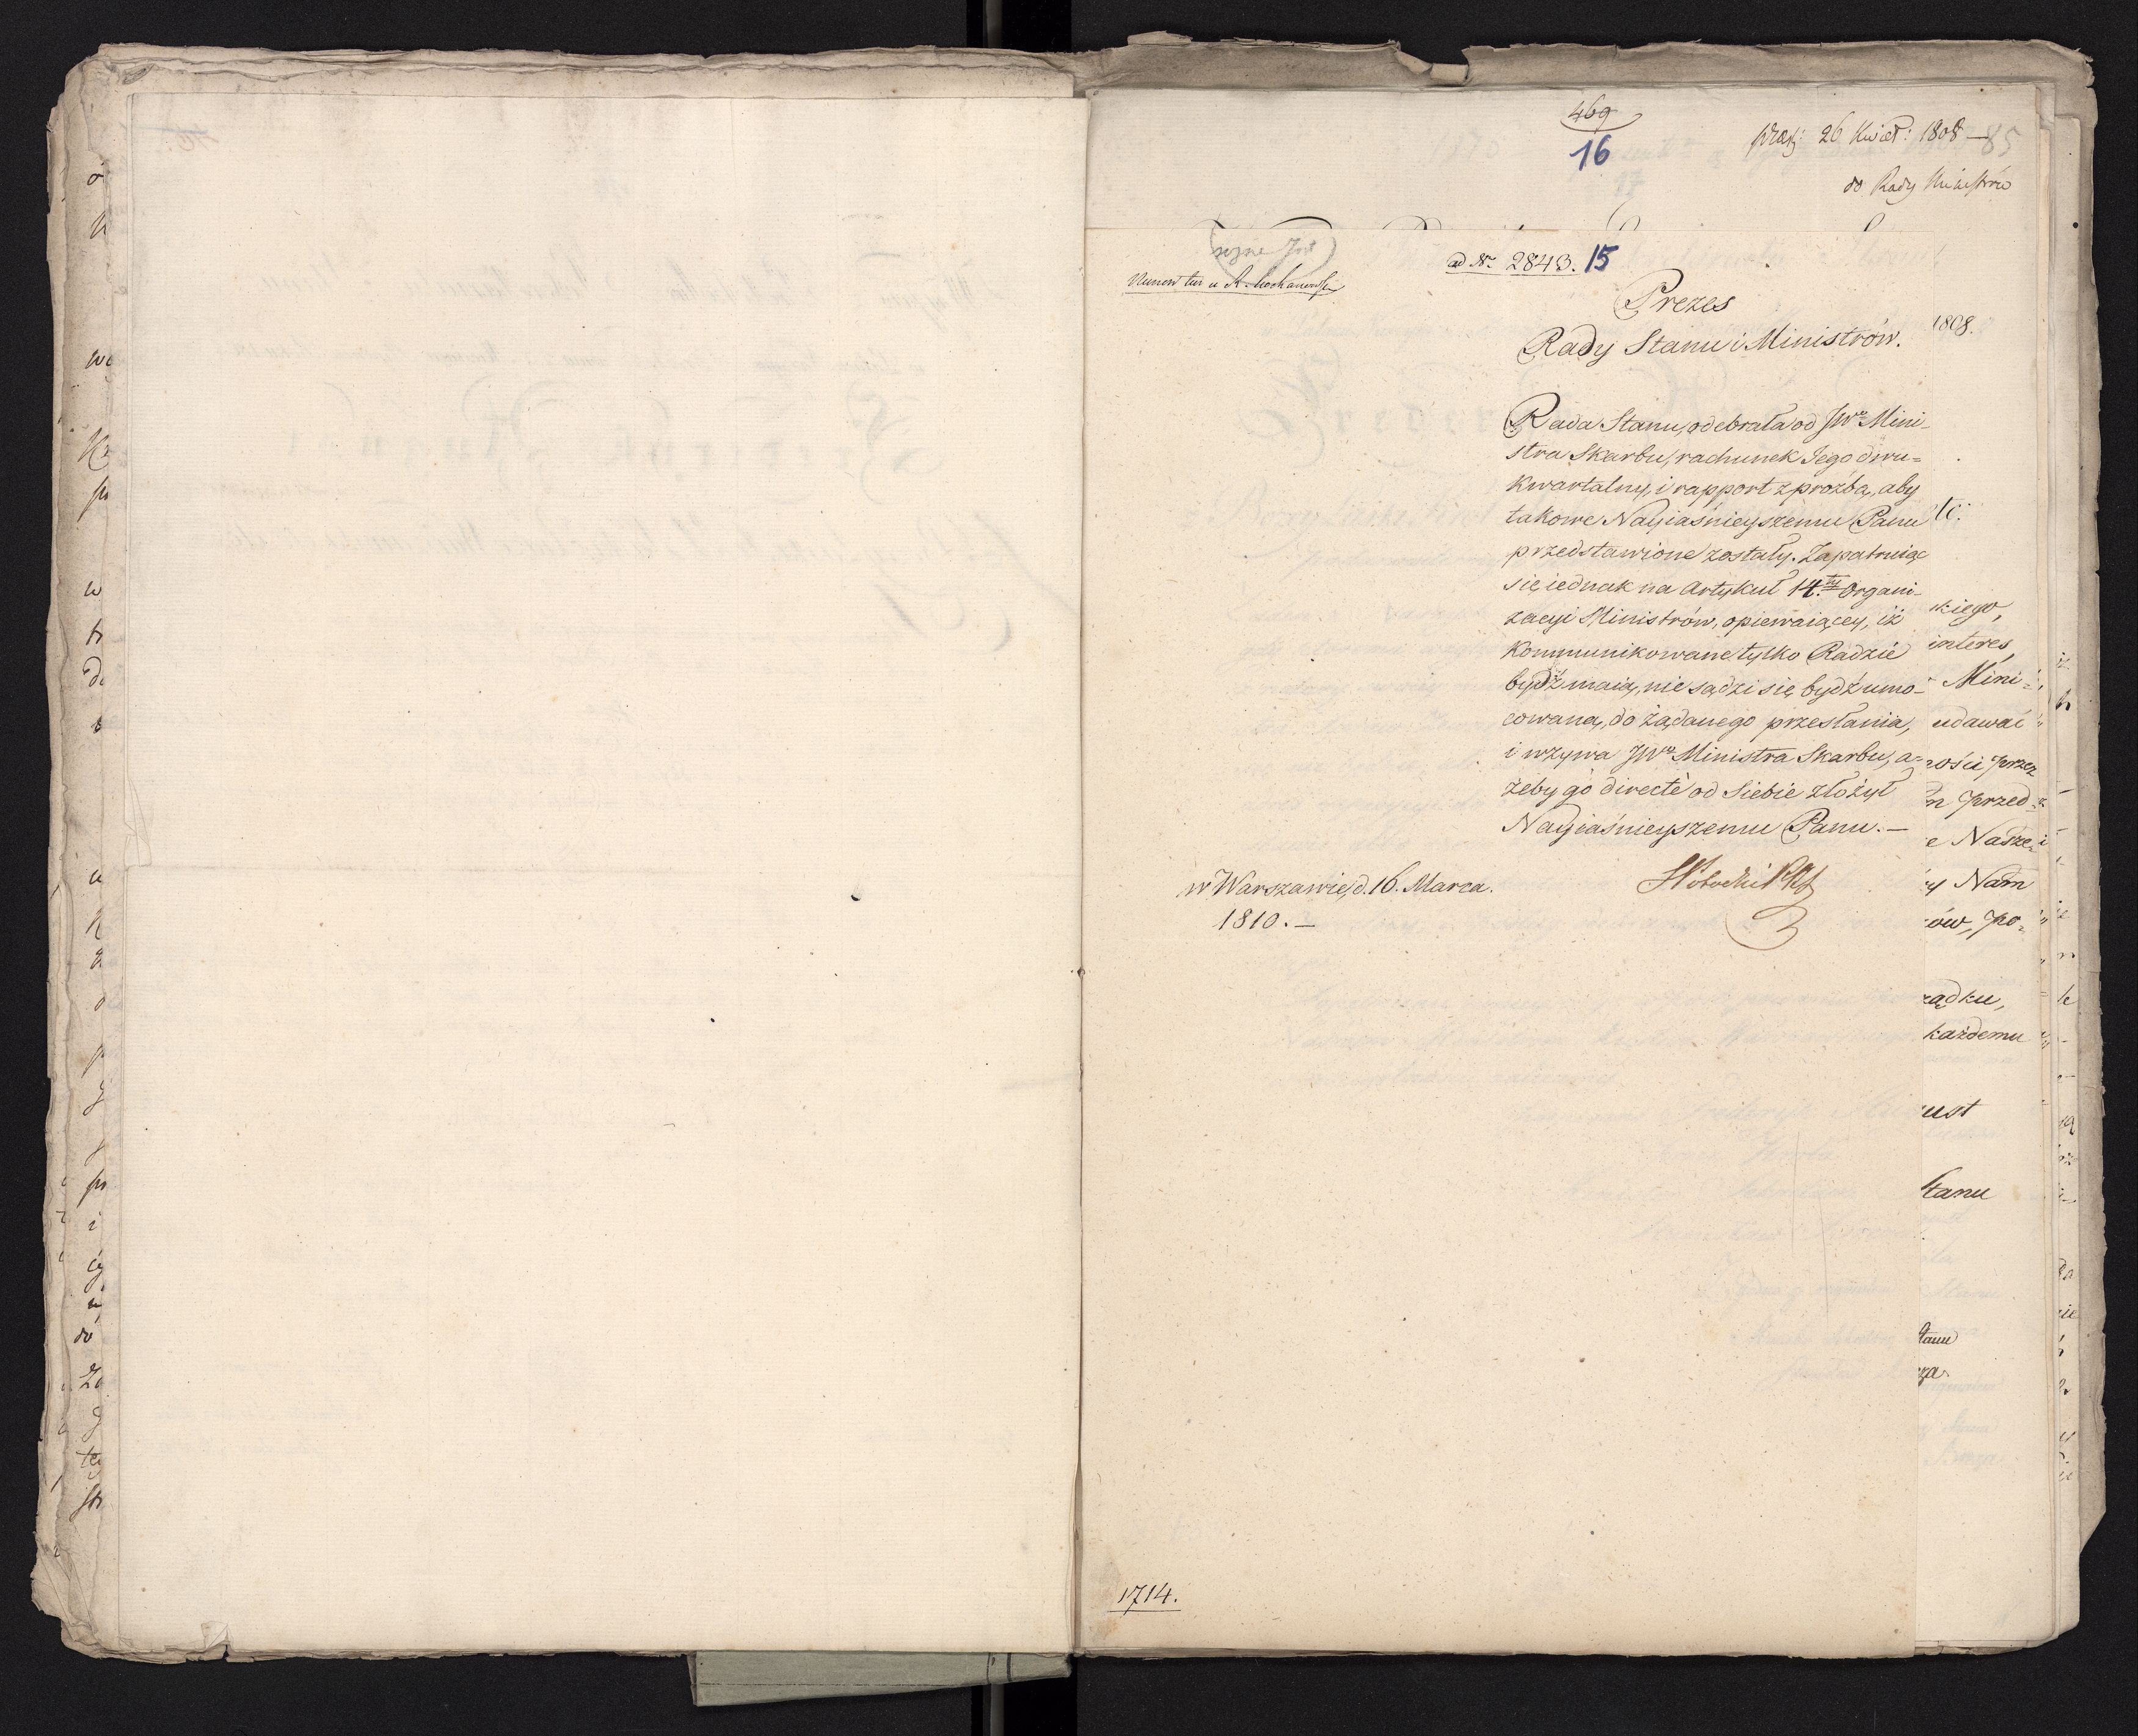 469
16
praes: 26 Kwiet: 1808 — 85
do Rady Ministrów
ad Nr. 2843. 15
Prezes
Rady Stanu i Ministrów.
Rada Stanu, odebrała od JWo Mini-
stra Skarbu, rachunek Jego dwu=
kwartalny, i rapport z prożbą, aby
takowe Nayiaśnieyszemu Panu
przedstawione zostały. Zapatruiąc
się iednak na Artykuł 14.ty Organi-
zacyi Ministrów, opiewaiącey, iż
kommunikowane tylko Radzie
bydź maią, nie sądzi się bydź umo-
cowaną, do żądanego przesłania,
i wzywa JWo Ministra Skarbu, a-
żeby go directè od siebie złożył
Nayiaśnieyszemu Panu. —
w Warszawie, d. 16. Marca.
1810. —
1714.
1808.
tc:
kiego,
interes,
Mini=
udawać
ości przez
m przed=
e Nasze=
y Nam
ów, po=
ządku,
każdemu
ust
Stanu
Stanu
za.